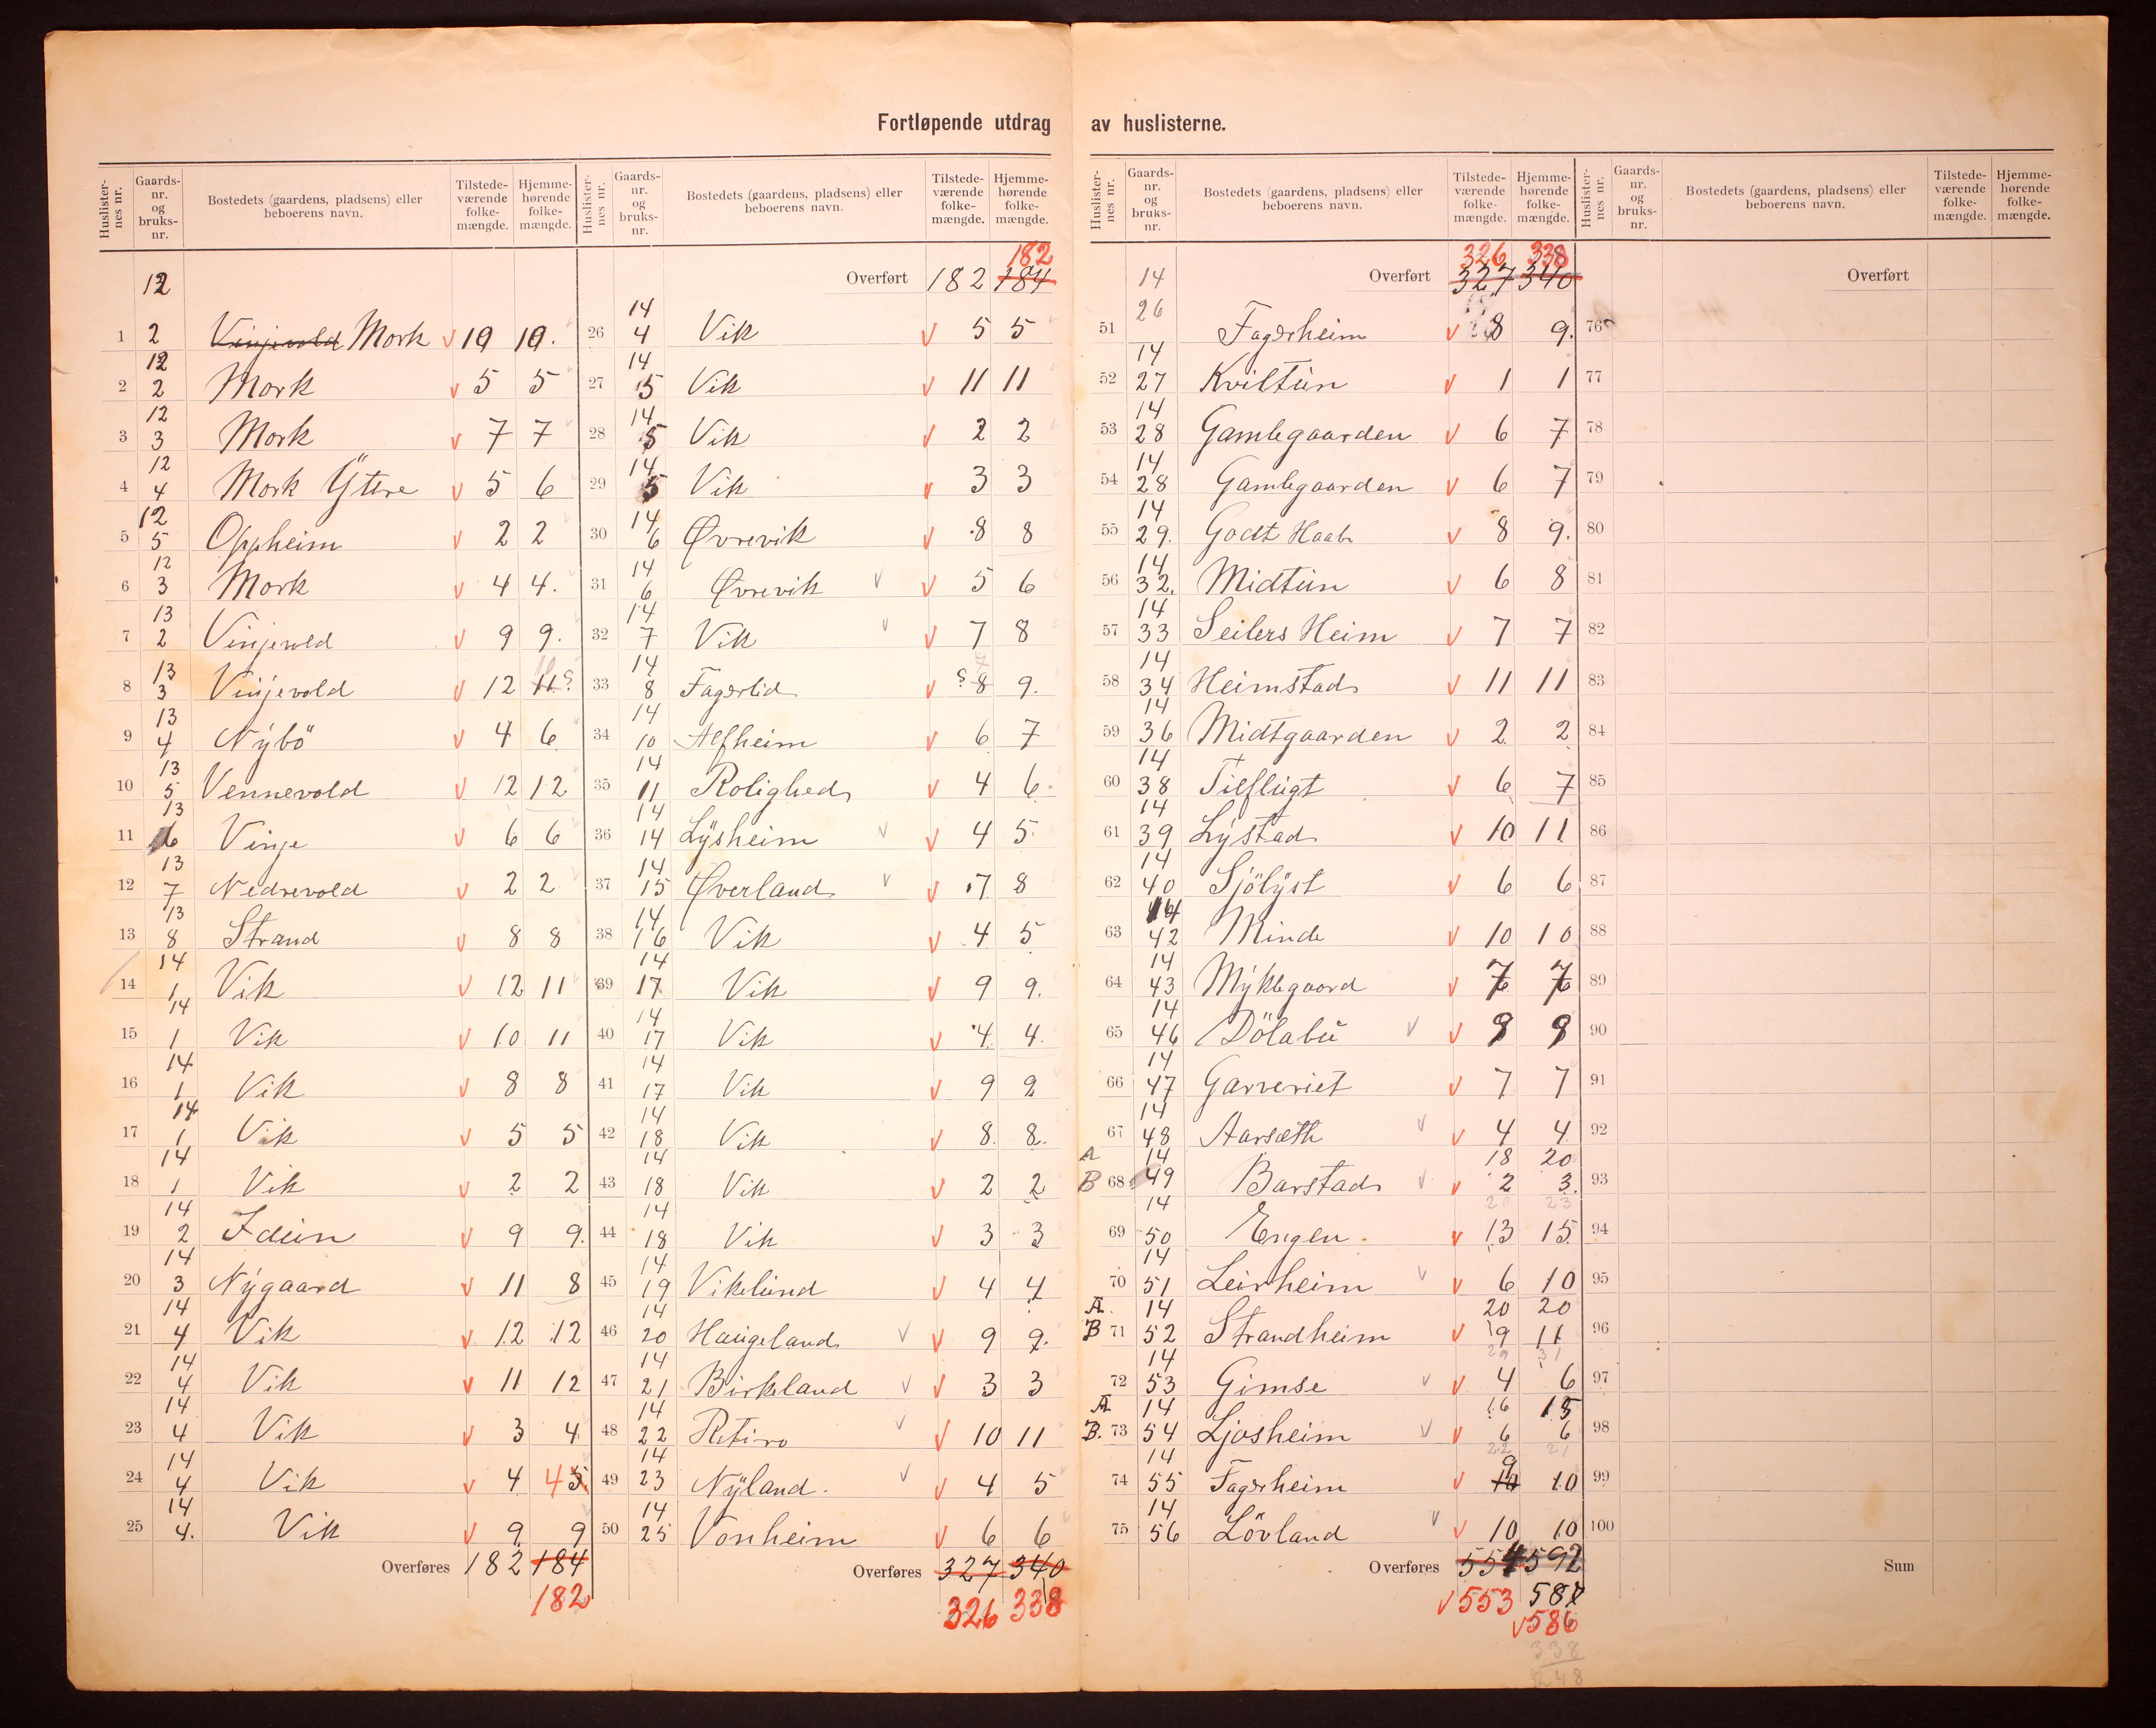 Fortløpende utdrag av huslisterne.
Huslister-nes nr. Gaards-nr. og bruks-nr. Bostedets (gaardens, pladsens) eller beboerens navn. Tilstede-værende folke-mængde. Hjemme-hørende folke-mængde.
12
1 2 Vinjevold Mork v 19 19.
12
2 2 Mork v 5 5
12
3 3 Mork v 7 7
12
4 4 Mork Ÿttre v 5 6
12
5 5 Oppheim v 2 2
12
6 3 Mork v 4 4.
13
7 2 Vinjevold v 9 9.
13
8 3 Vinjevold v 12 11
13
9 4 Nÿbö v 4 6
13
10 5 Vennevold v 12 12
13
11 6 Vinje v 6 6
13
12 7 Nedrevold v 2 2
13
13 8 Strand v 8 8
14
14 1 Vik v 12 11
14
15 1 Vik v 10 11
14
16 1 Vik v 8 8
14
17 1 Vik v 5 5
14
18 1 Vik v 2 2
14
19 2 v 9 9.
14
20 3 Nÿgaard v 11 8
14
21 4 Vik v 12 12
14
22 4 Vik v 11 12
14
23 4 Vik v 3 4
14
24 4 Vik v 4 4 5
14
25 4. Vik v 9 9
Overføres 182 184
182
Huslister-nes nr. Gaards-nr. og bruks-nr. Bostedets (gaardens, pladsens) eller beboerens navn. Tilstede-værende folke-mængde. Hjemme-hørende folke-mængde.
182
Overført 182 184
14
26 4 Vik v 5 5
14
27 5 Vik v 11 11
14
28 5 Vik v 2 2
14
29 5 Vik v 3 3
14
30 6 Øvrevik v 8 8
14
31 6 Øvrevik v v 5 6
14
32 7 Vik v v 7 8
14
33 8 Fagerlid v 8 9.
14
34 10 Alfheim v 6 7
14
35 11 Rolighed v 4 6.
14
36 14 Lÿsheim v v 4 5.
14
37 15 Øverland v v 7 8
14
38 16 Vik v 4 5
14
39 17 Vik v 9 9.
14
40 17 Vik v 4 4.
14
41 17 Vik v 9 9
14
42 18 Vik v 8. 8.
14
43 18 Vik v 2 2
14
44 18 Vik v 3 3
14
45 19 Vikelund v 4 4
14
46 20 Haugeland v v 9 9.
14
47 21 Birkeland v v 3 3
14
48 22 Retiro v v 10 11
14
49 23 Nÿland. v v 4 5
14
50 25 Vonheim v 6 6
Overføres 327 340
326 338
Huslister-nes nr. Gaards-nr. og bruks-nr. Bostedets (gaardens, pladsens) eller beboerens navn. Tilstede-værende folke-mængde. Hjemme-hørende folke-mængde.
326 338
14 Overført 327 340
51 26 Fagerheim v 8 9.
14
52 27 Kviltun v 1 1
14
53 28 Gamlegaarden v 6 7
14
54 28 Gamlegaarden v 6 7
14
55 29. Godt Haab v 8 9.
14
56 32. Midtun v 6 8
14
57 33 Seilers Heim v 7 7
14
58 34 Heimstad v 11 11
14
59 36 Midtgaarden v 2 2
14
60 38 Tilflugt v 6 7
14
61 39 Lÿstad v 10 11
14
62 40 Sjölÿst v 6 6
14
63 42 Minde v 10 10
14
64 43 Mÿklegaard v 7 7
14
65 46 Dölabu v v 9 9
14
66 47 Garveriet v 7 7
14
67 48 Aarsæth v v 4 4.
A 14 18 20
B 68 49 Barstad v v 2 3.
20 23
14
69 50 Engen. v 13 15
14
70 51 Leirheim v v 6 10
A. 14 20 20
B 71 52 Strandheim v 9 11
29 31
14
72 53 Gimse v v 4 6
A 14 16 15
B. 73 54 Ljosheim v v 6 6
22 21
14 9
74 55 Fagerheim v 10 10
14
75 56 Lövland v v 10 10
Overføres 554 592
v 553 587
v 586
338
248
Huslister-nes nr. Gaards-nr. og bruks-nr. Bostedets (gaardens, pladsens) eller beboerens navn. Tilstede-værende folke-mængde. Hjemme-hørende folke-mængde.
Overført
76
77
78
79
80
81
82
83
84
85
86
87
88
89
90
91
92
93
94
95
96
97
98
99
100
Sum